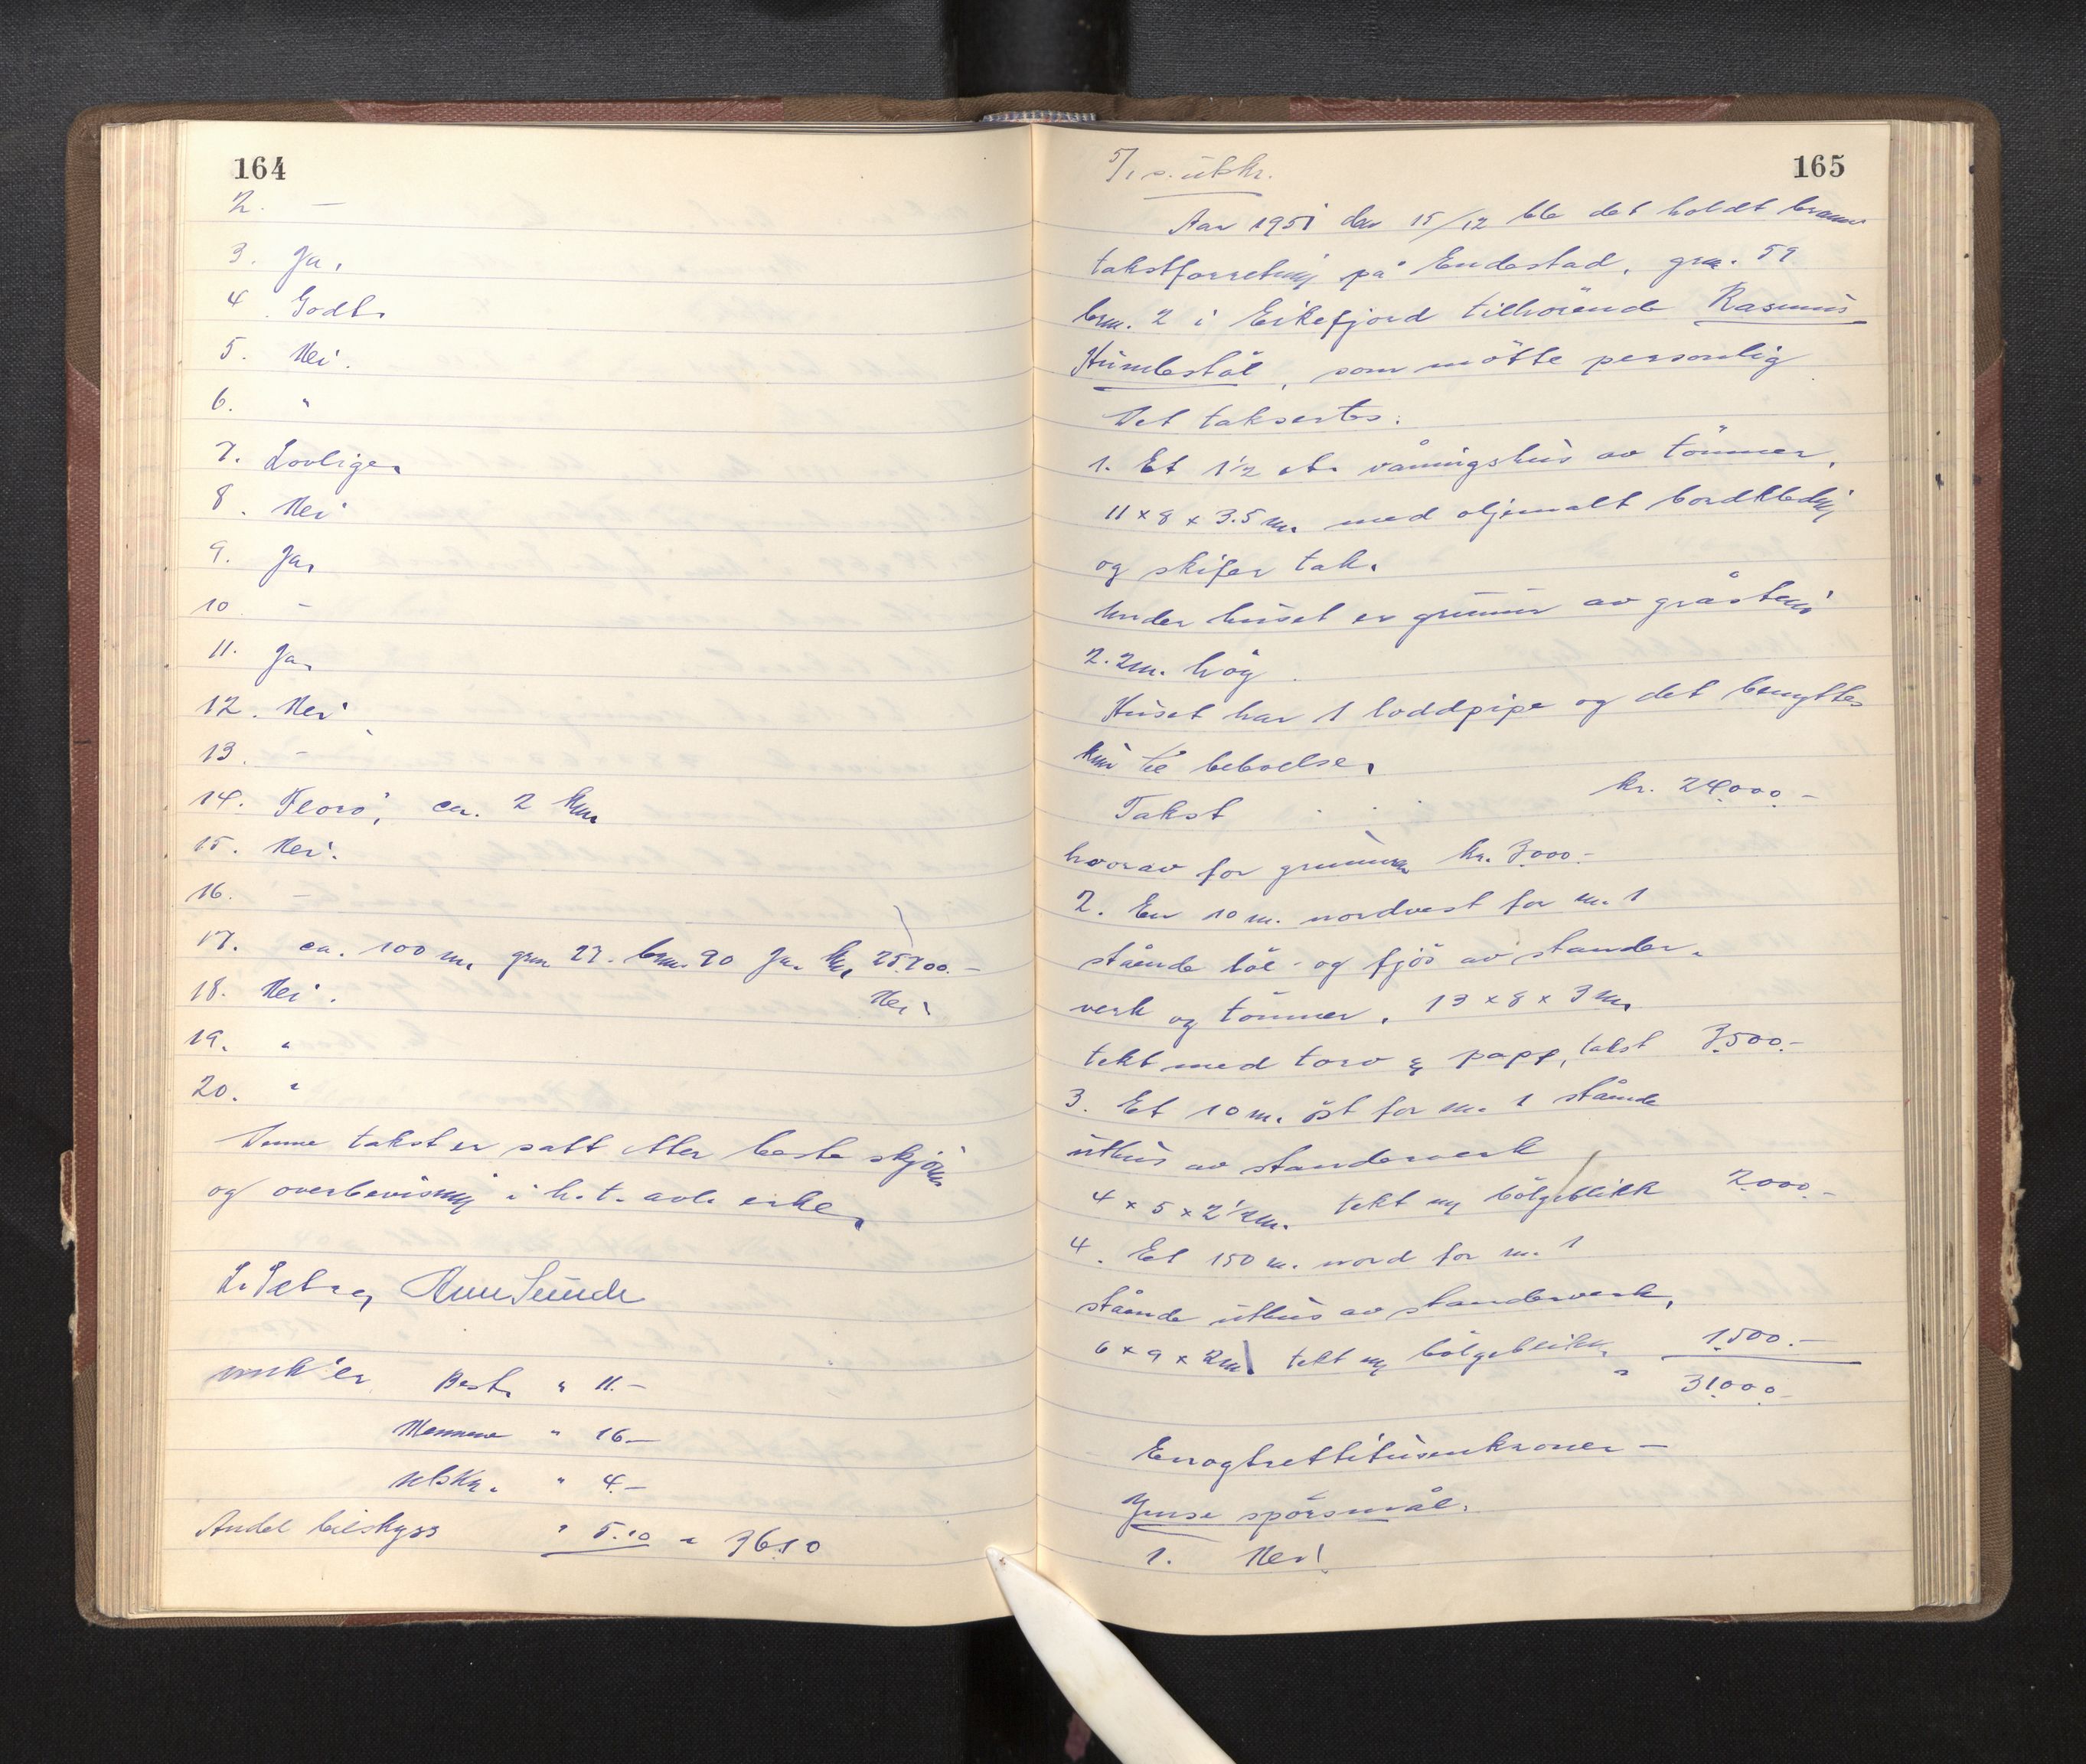 164
2. —
3. Ja.
4. Godt.
5. Nei.
6. "
7. Lovlige.
8. Nei
9. Ja.
10 -
11. Ja.
12. Nei
13. -
14. Florö, ca. 2 km
15. Nei.
16. -
17. ca. 100 m. gnr. 27. brn. 90 Ja. kr. 25.700.-
18. Nei. Nei
19. "
20. "
Denne takst er satt etter beste skjönn
og overbevisning i h. t. avl. erkl.
Best. " 11.-
Mennene " 16.-
Utskr. " 4.-
Andel bilskyss " 5.10 = 36.10
165
5/1 s. utskr.
Aar 1951 den 15/12 ble det holdt brann
takstforretning på Endestad, gnr. 59
brn. 2 i Eikefjord tilhörende Rasmus
Humlestöl, som mötte personlig
Det taksertes:
1. Et 1½ etr våningshus av tömmer,
11 x 8 x 3.5 m. med oljemalt bordkledning
og skifer tak.
Under huset er grunnmur av gråstein
2.2 m. hög
Huset har 1 loddpipe og det benyttes
kun til beboelse.
Takst kr. 24.000.-
hvorav for grunnmuren kr. 3.000.-
2. En 10 m. nordvest for nr. 1
stående löe- og fjös av stander-
verk og tömmer, 13 x 8 x 3 m.
tekt med torv og papp, takst 3.500.-
3. Et 10 m. öst for nr. 1 stående
uthus av standerverk
4 x 5 x 2½ m. tekt m/ bölgeblikk 2.000.-
4. Et 150 m. nord for nr. 1
stående uthus av standerverk,
6 x 9 x 2 m tekt m/ bölgeblikk 1.500.-
" 31.000.-
Enogtrettitusenkroner —
Ymse spörsmål.
1. Nei